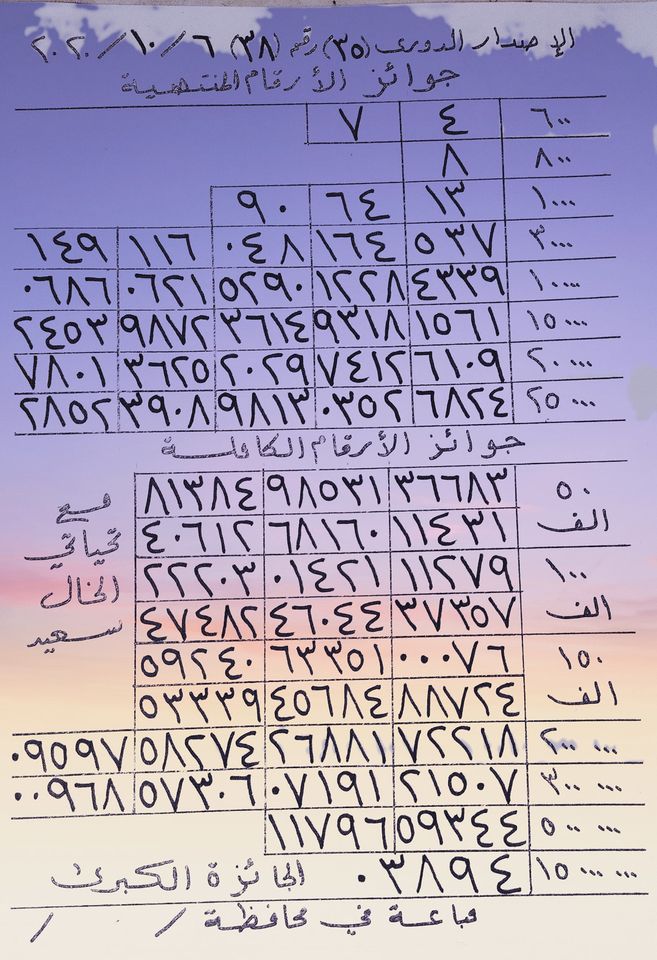 الإصدار الدورى (٣٥) رقم (٣٨) ٦/١٠/٢٠٢٠
جوائز الأرقام المنتهية
٦٠٠ ٤ ٧
٨٠٠ ٨
١٠٠٠ ١٣ ٦٤ ٩٠
٣٠٠٠ ٥٣٧ ١٦٤ ٠٤٨ ١١٦ ١٤٩
١٠٠٠٠ ٤٣٣٩ ١٢٢٨ ٥٢٩٠ ٠٦٢١ ٠٦٨٦
١٥٠٠٠ ١٥٦١ ٩٣١٨ ٣٦١٤ ٩٨٧٢ ٢٤٥٣
٢٠٠٠٠ ٦١٠٩ ٧٤١٢ ٢٠٢٩ ٣٦٢٥ ٧٨٠١
٢٥٠٠٠ ٦٨٢٤ ٠٣٥٢ ٩٨١٣ ٣٩٠٨ ٢٨٥٢
جوائز الأرقام الكاملة
٥٠ ٣٦٦٨٣ ٩٨٥٣١ ٨١٣٨٤
الف ١١٤٣١ ٦٨١٦٠ ٤٠٦١٢
١٠٠ ١١٢٧٩ ٠١٤٢١ ٢٢٢٠٣
الف ٣٧٣٥٧ ٤٦٠٤٤ ٤٧٤٨٢
١٥٠ ٠٠٠٧٦ ٦٣٣٥١ ٥٩٢٤٠
الف ٨٨٧٢٤ ٤٥٦٨٤ ٥٣٣٣٩
٢٠٠ ٠٠٠ ٧٢٢١٨ ٢٦٨٨١ ٥٨٢٧٤ ٠٩٥٩٧
٣٠٠ ٠٠٠ ٢١٥٠٧ ٠٧١٩١ ٥٧٣٠٦ ٠٠٩٦٨
٥٠٠ ٠٠٠ ٥٩٣٤٤ ١١٧٩٦
١٥٠٠ ٠٠٠ ٠٣٨٩٤ الجائزة الكبرى
مباعة في محافظة / /
مع
تحياتي
الخال
سعيد